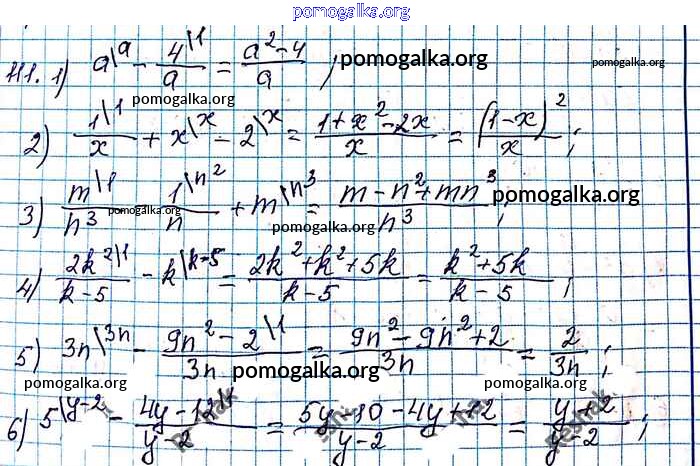 pomogalka.org
111. 1) a\a - 4\1/a = (a² - 4)/a ; pomogalka.org pomogalka.org
pomogalka.org
2) 1\1/x + x\x - 2\x = (1 + x² - 2x)/x = (1 - x)²/x ;
pomogalka.org
3) m\1/n³ - 1\n²/n + m\n³ = (m - n² + mn³)/n³ ; pomogalka.org
pomogalka.org pomogalka.org
4) 2k²\1/(k-5) - k\k-5 = (2k² + k² + 5k)/(k-5) = (k² + 5k)/(k-5) ;
pomogalka.org
5) 3n\3n - (9n² - 2\1)/3n = (9n² - 9n² + 2)/3n = 2/3n ;
pomogalka.org pomogalka.org pomogalka.org
6) 5\y-2 - (4y - 12\1)/(y-2) = (5y - 10 - 4y + 12)/(y-2) = (y + 2)/(y-2) ;
Reshak Reshak